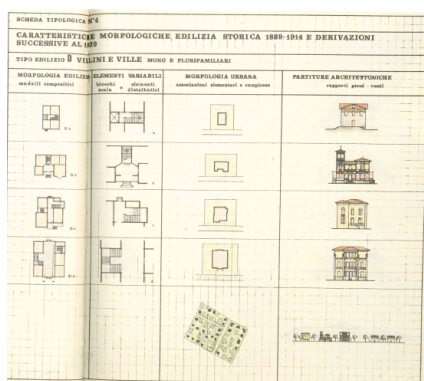 SCHEDA TIPOLOGICA N°4
CARATTERISTICHE MORFOLOGICHE EDILIZIA STORICA 1889-1914 E DERIVAZIONI
SUCCESSIVE AL 1939
TIPO EDILIZIO D VILLINI E VILLE MONO E PLURIFAMILIARI
MORFOLOGIA EDILIZIA
modelli compositivi
ELEMENTI VARIABILI
blocchi scala e elementi distributivi
MORFOLOGIA URBANA
associazioni elementari e complesse
PARTITURE ARCHITETTONICHE
rapporti pieni - vuoti